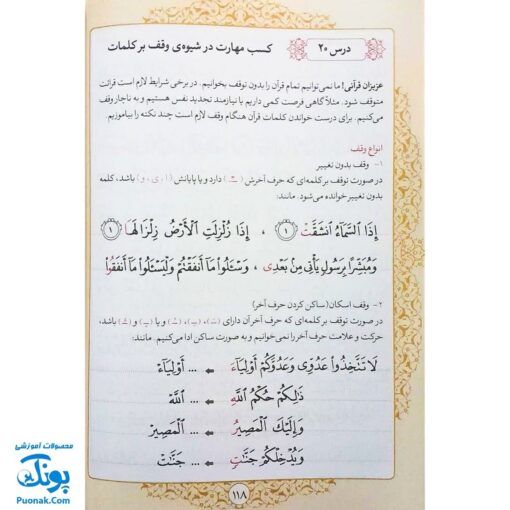 درس ۲۰
کسب مهارت در شیوه‌ی وقف بر کلمات
عزیزان قرآنی! ما نمی‌توانیم تمام قرآن را بدون توقف بخوانیم. در برخی شرایط لازم است قرائت
متوقف شود. مثلاً گاهی فرصت کمی داریم یا نیازمند تجدید نفس هستیم و به ناچار وقف
می‌کنیم. برای درست خواندن کلمات قرآن هنگام وقف لازم است چند نکته را بیاموزیم.
انواع وقف
۱- وقف بدون تغییر
در صورت توقف بر کلمه‌ای که حرف آخرش (ــْـ) دارد و یا پایانش (ا ، ی ، و) باشد، کلمه
بدون تغییر خوانده می‌شود. مانند:
إِذَا السَّمَاءُ انْشَقَّتْ ﴿۱﴾ ، إِذَا زُلْزِلَتِ الْأَرْضُ زِلْزَالَهَا ﴿۱﴾
وَمُبَشِّرًا بِرَسُولٍ يَأْتِي مِنْ بَعْدِي ، وَسْئَلُوا مَا أَنْفَقْتُمْ وَلْيَسْئَلُوا مَا أَنْفَقُوا
۲- وقف اسکان(ساکن کردن حرف آخر)
در صورت توقف بر کلمه‌ای که حرف آخر آن دارای (ــَـ) ، (ــِـ) ، (ــُـ) و یا (ــٍـ) و (ــٌـ) باشد،
حرکت و علامت حرف آخر را نمی‌خوانیم و به صورت ساکن ادا می‌کنیم. مانند:
لَا تَتَّخِذُوا عَدُوِّي وَعَدُوَّكُمْ أَوْلِيَاءَ ← ... أَوْلِيَاءْ
ذَلِكُمْ حُكْمُ اللَّهِ ← ... اللَّهْ
وَإِلَيْكَ الْمَصِيرُ ← ... الْمَصِيرْ
وَيُدْخِلْكُمْ جَنَّاتٍ ← ... جَنَّاتْ
۱۱۸
محصولات آموزشی
پونک
Puonak.Com